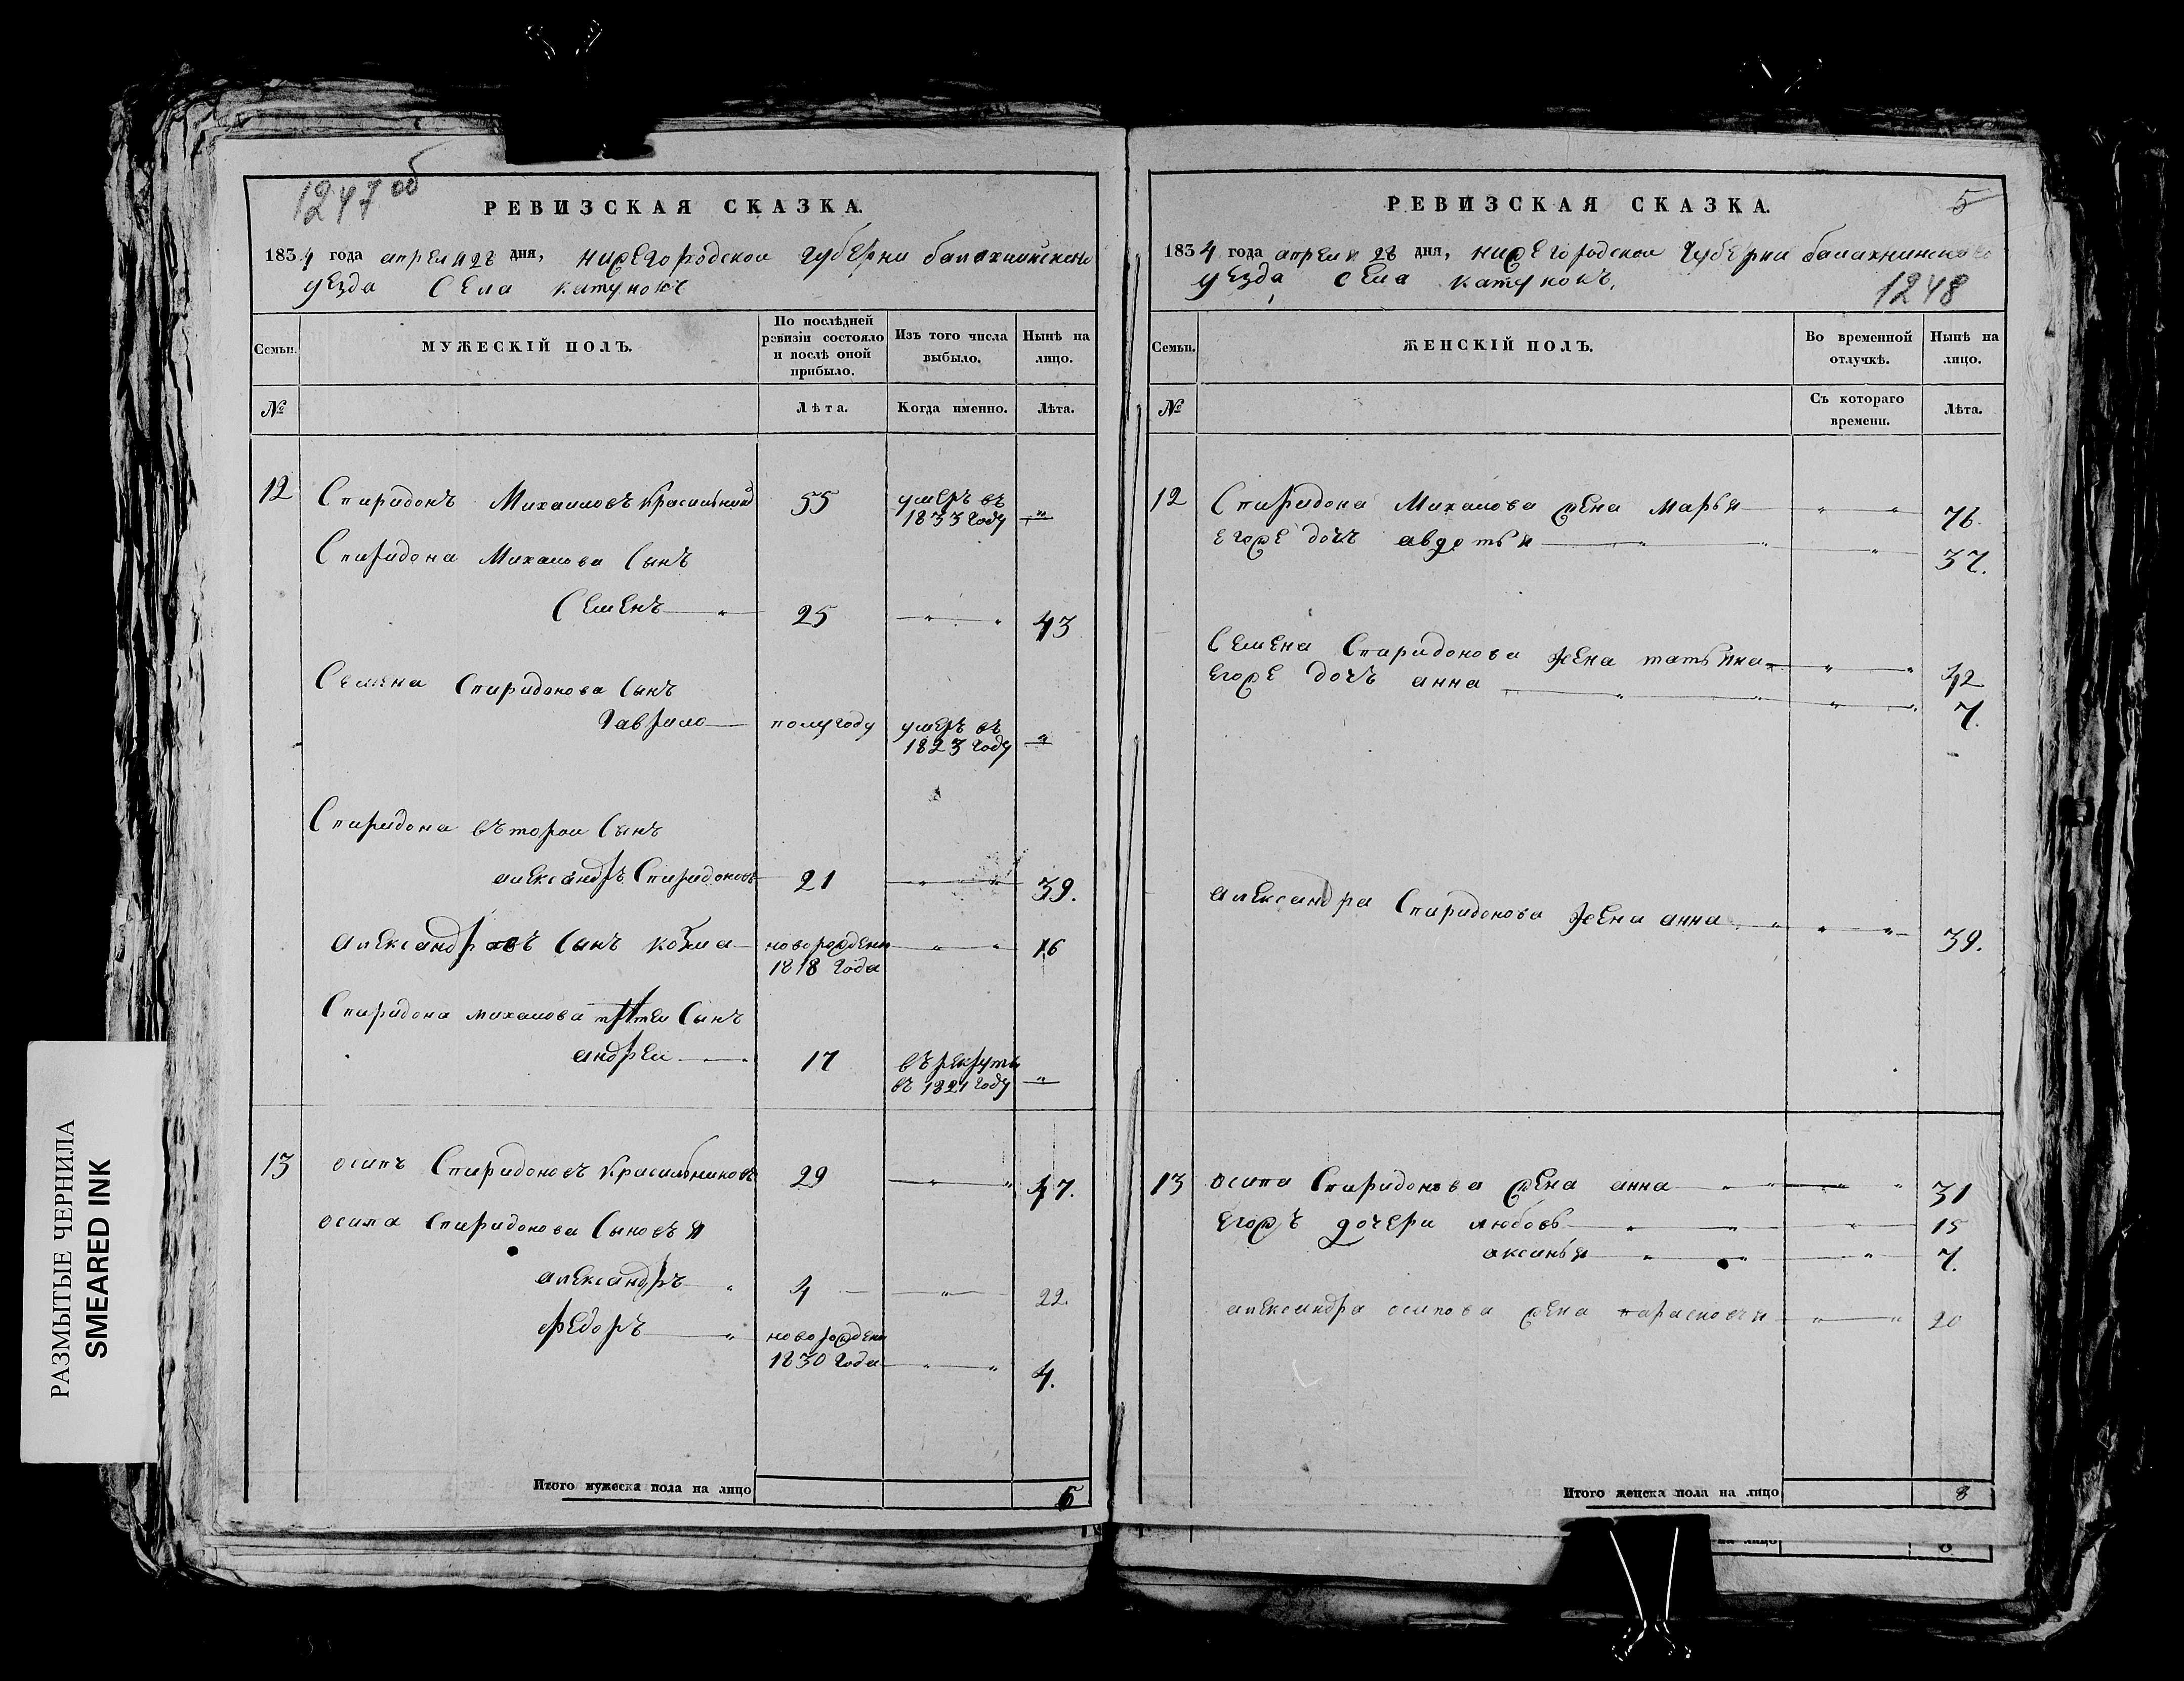 РАЗМЫТЫЕ ЧЕРНИЛА
SMEARED INK
1247 об
РЕВИЗСКАЯ СКАЗКА.
1834 года апреля 28 дня, нижегородскои губерни балахнинскаго
уезда села катунокъ
Семьи.
МУЖЕСКІЙ ПОЛЪ.
По послѣдней ревизіи состояло и послѣ оной прибыло.
Изъ того числа выбыло.
Нынѣ на лицо.
№
Лѣта.
Когда именно.
Лѣта.
12 Спиридонъ Михаиловъ Красильник 55 умеръ въ 1833 году "
Спиридона Михаилова Сынъ
Семенъ " 25 " " 43
Семена Спиридонова Сынъ
Гаврило полугоду умеръ въ 1823 году "
Спиридона въторои Сынъ
александръ Спиридоновъ 21 " " 39.
александровъ Сынъ козма новорожденъ 1818 года " " 16
Спиридона михаилова третеи Сынъ
андреи 17 въ рекруты въ 1821 году "
13 осипъ Спиридоновъ Красильниковъ 29 " 47.
осипа Спиридонова Сыновья
александръ " 4 " 22.
федоръ " новорожденъ 1830 года " " 4.
Итого мужеска пола на лицо 6
РЕВИЗСКАЯ СКАЗКА.
5
1834 года апреля 28 дня, нижегородскои губерни балахнинскаго
уезда села катунокъ,
1248
Семьи.
ЖЕНСКІЙ ПОЛЪ.
Во временной отлучкѣ.
Нынѣ на лицо.
№
Съ котораго времени.
Лѣта.
12 Спиридона Михаилова жена марья " " 76.
егоже дочъ авдотья " " " 37.
Семена Спиридонова жена татьяна " " 42
егоже дочъ анна " " " " 7.
александра Спиридонова жена анна " " " 39.
13 осипа Спиридонова жена анна " " " " 31
егожъ дочери любовь " " " 15
аксинья " " " 7.
александра осипова жена парасковья " " 20
Итого женска пола на лицо 8
на лицо